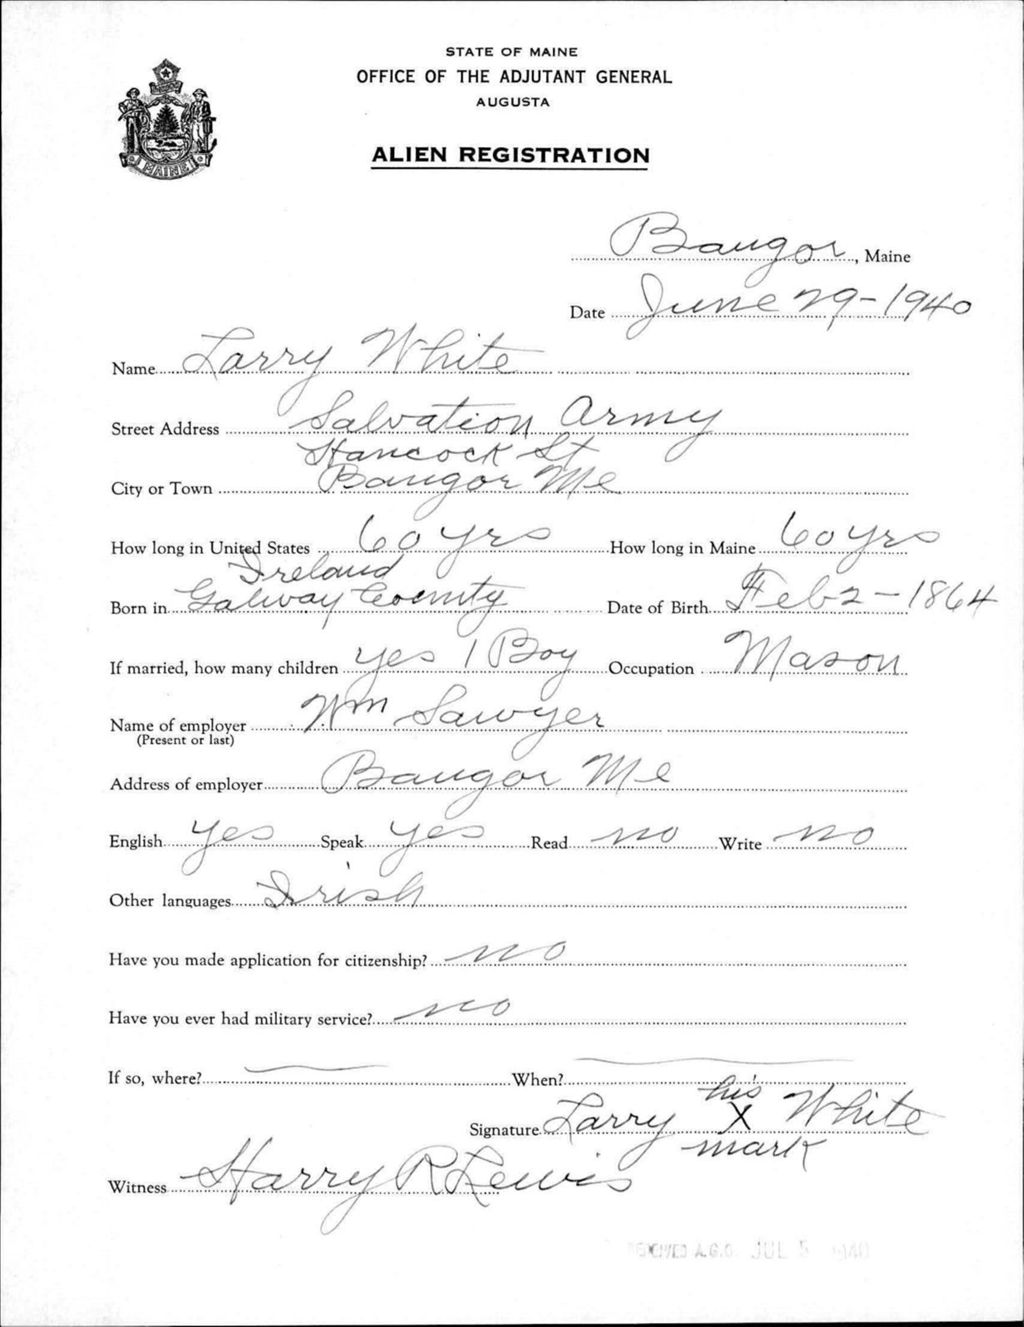 STATE OF MAINE
OFFICE OF THE ADJUTANT GENERAL
AUGUSTA
ALIEN REGISTRATION
MAINE
Bangor, Maine
Date June 29-1940
Name Larry White
Street Address Salvation Army
Hancock St
City or Town Bangor Me
How long in United States 60 yrs How long in Maine 60 yrs
Ireland
Born in Galway County Date of Birth Feb 2-1864
If married, how many children yes 1 Boy Occupation Mason
Name of employer Wm Sawyer
(Present or last)
Address of employer Bangor Me
English yes Speak yes Read no Write no
Other languages Irish
Have you made application for citizenship? no
Have you ever had military service? no
If so, where? When?
his
Signature Larry X White
mark
Witness Harry R Lewis
RECEIVED A.G.O. JUL 5 1940